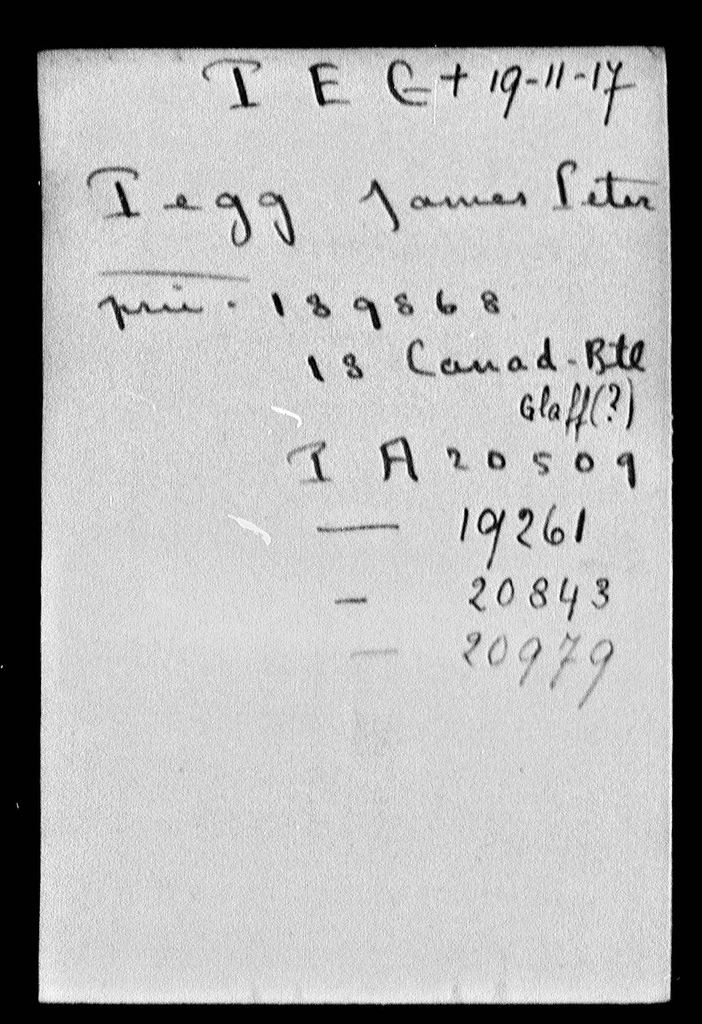 T E G + 19-11-17
Tegg James Peter
priv. 189868
18 Canad-Btl
Glaff(?)
T A 20509
— 19261
— 20843
— 20979